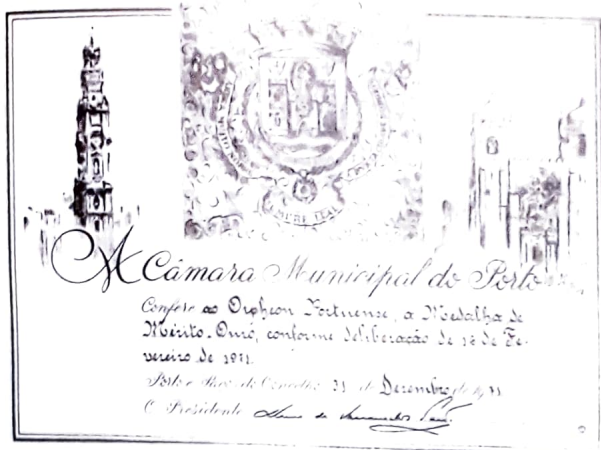 SEMPRE LEAL
A Câmara Municipal do Porto
Confere ao Orpheon Portuense, a Medalha de
Mérito-Ouro, conforme deliberação de de Fe-
vereiro de 1971.
Porto e Paços do Concelho, 31 de Dezembro de 1971
O Presidente